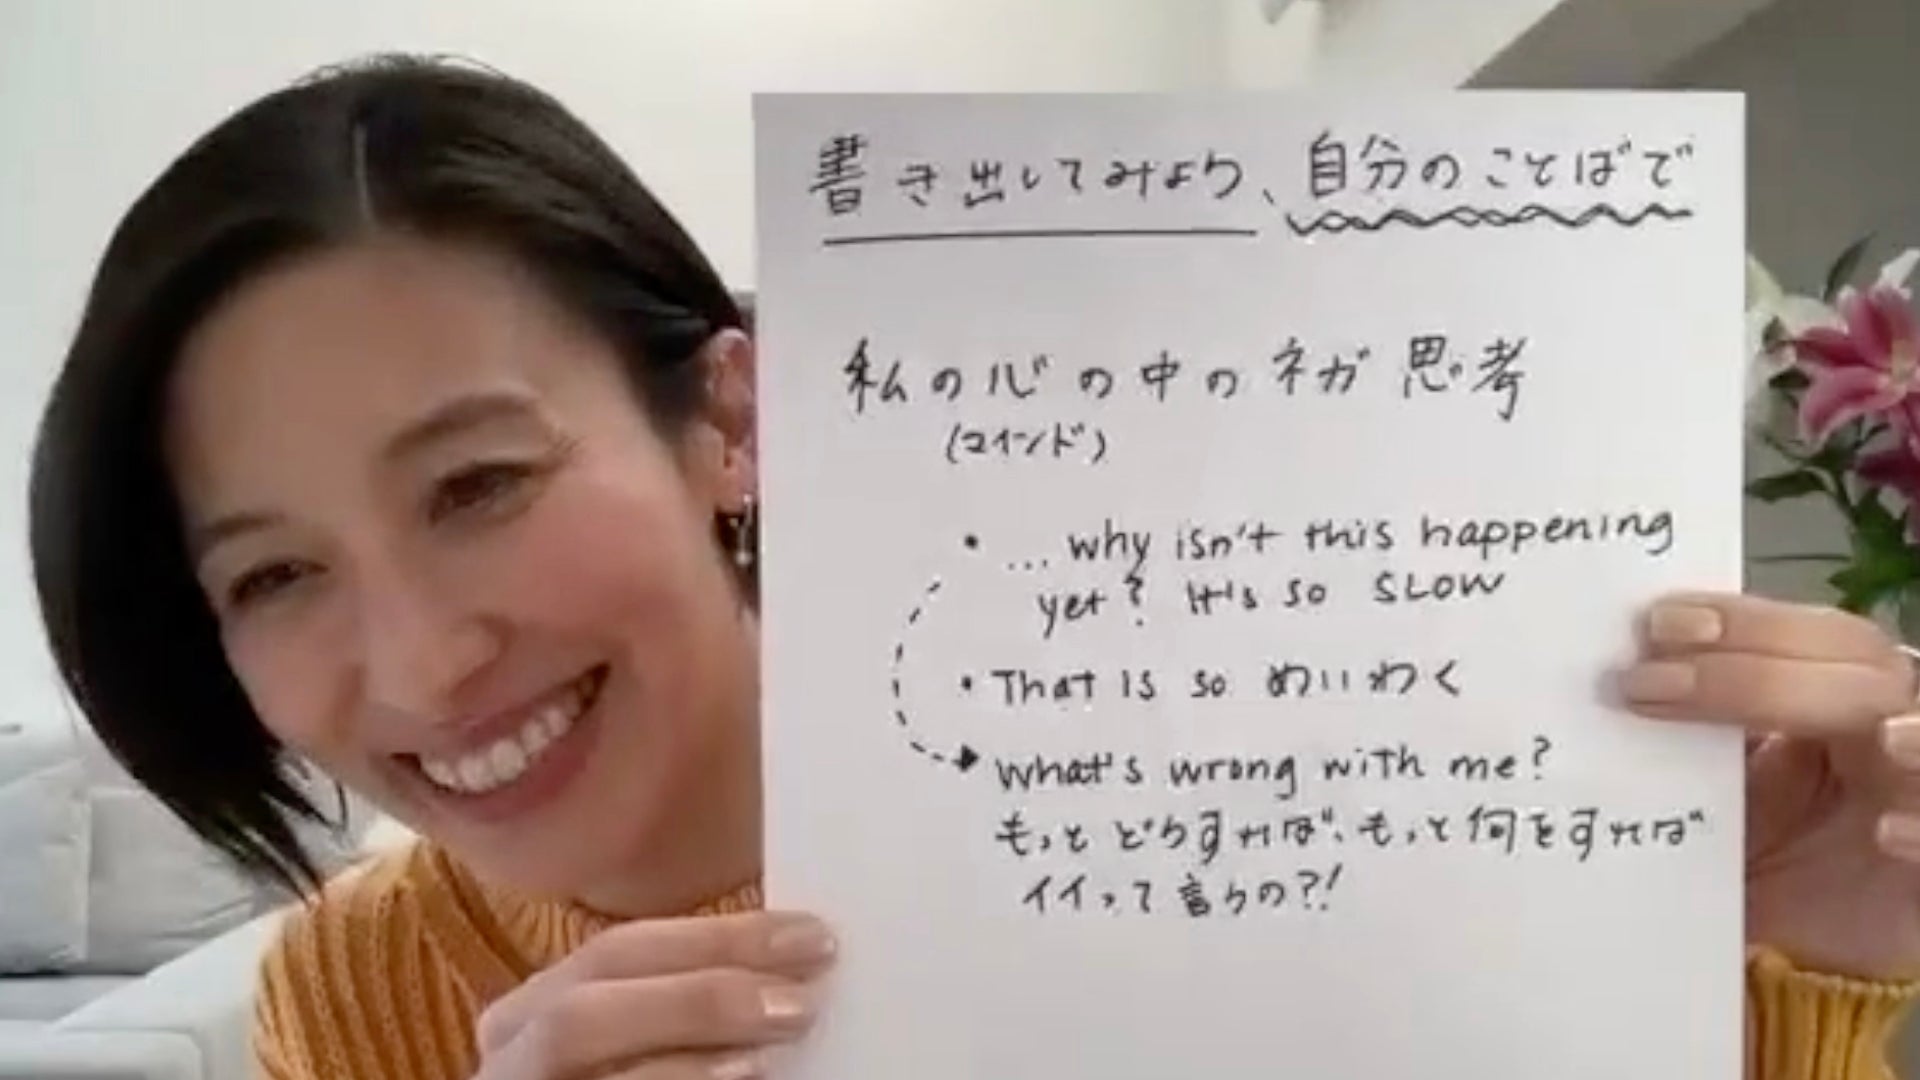 書き出してみよう、自分のことばで
私の心の中のネガ思考
(マインド)
• ... why isn't this happening
yet? It's so SLOW
• That is so めいわく
What's wrong with me?
もっとどうすれば、もっと何をすれば
イイって言うの?!